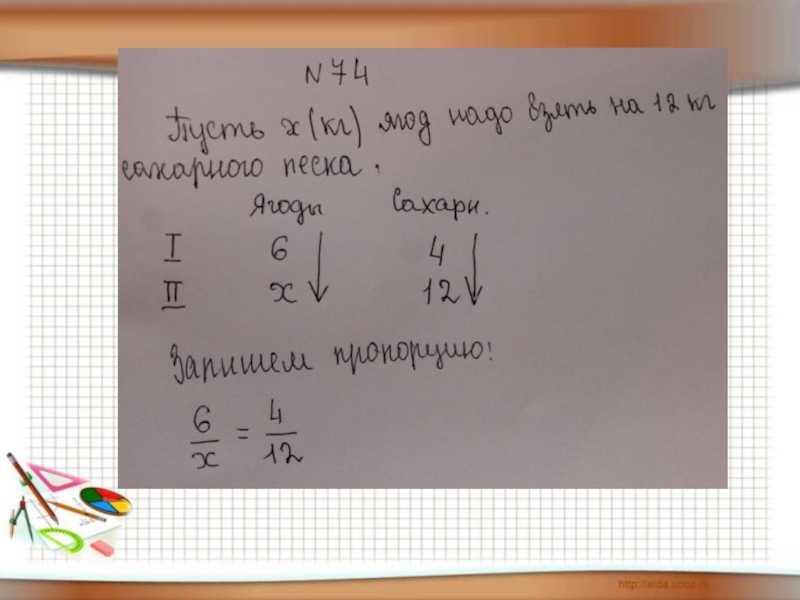 N 74
Пусть x (кг) ягод надо взять на 12 кг
сахарного песка.
Ягоды Сахарн.
I 6 4
II x 12
Запишем пропорцию!
6/x = 4/12
http://aida.ucoz.ru